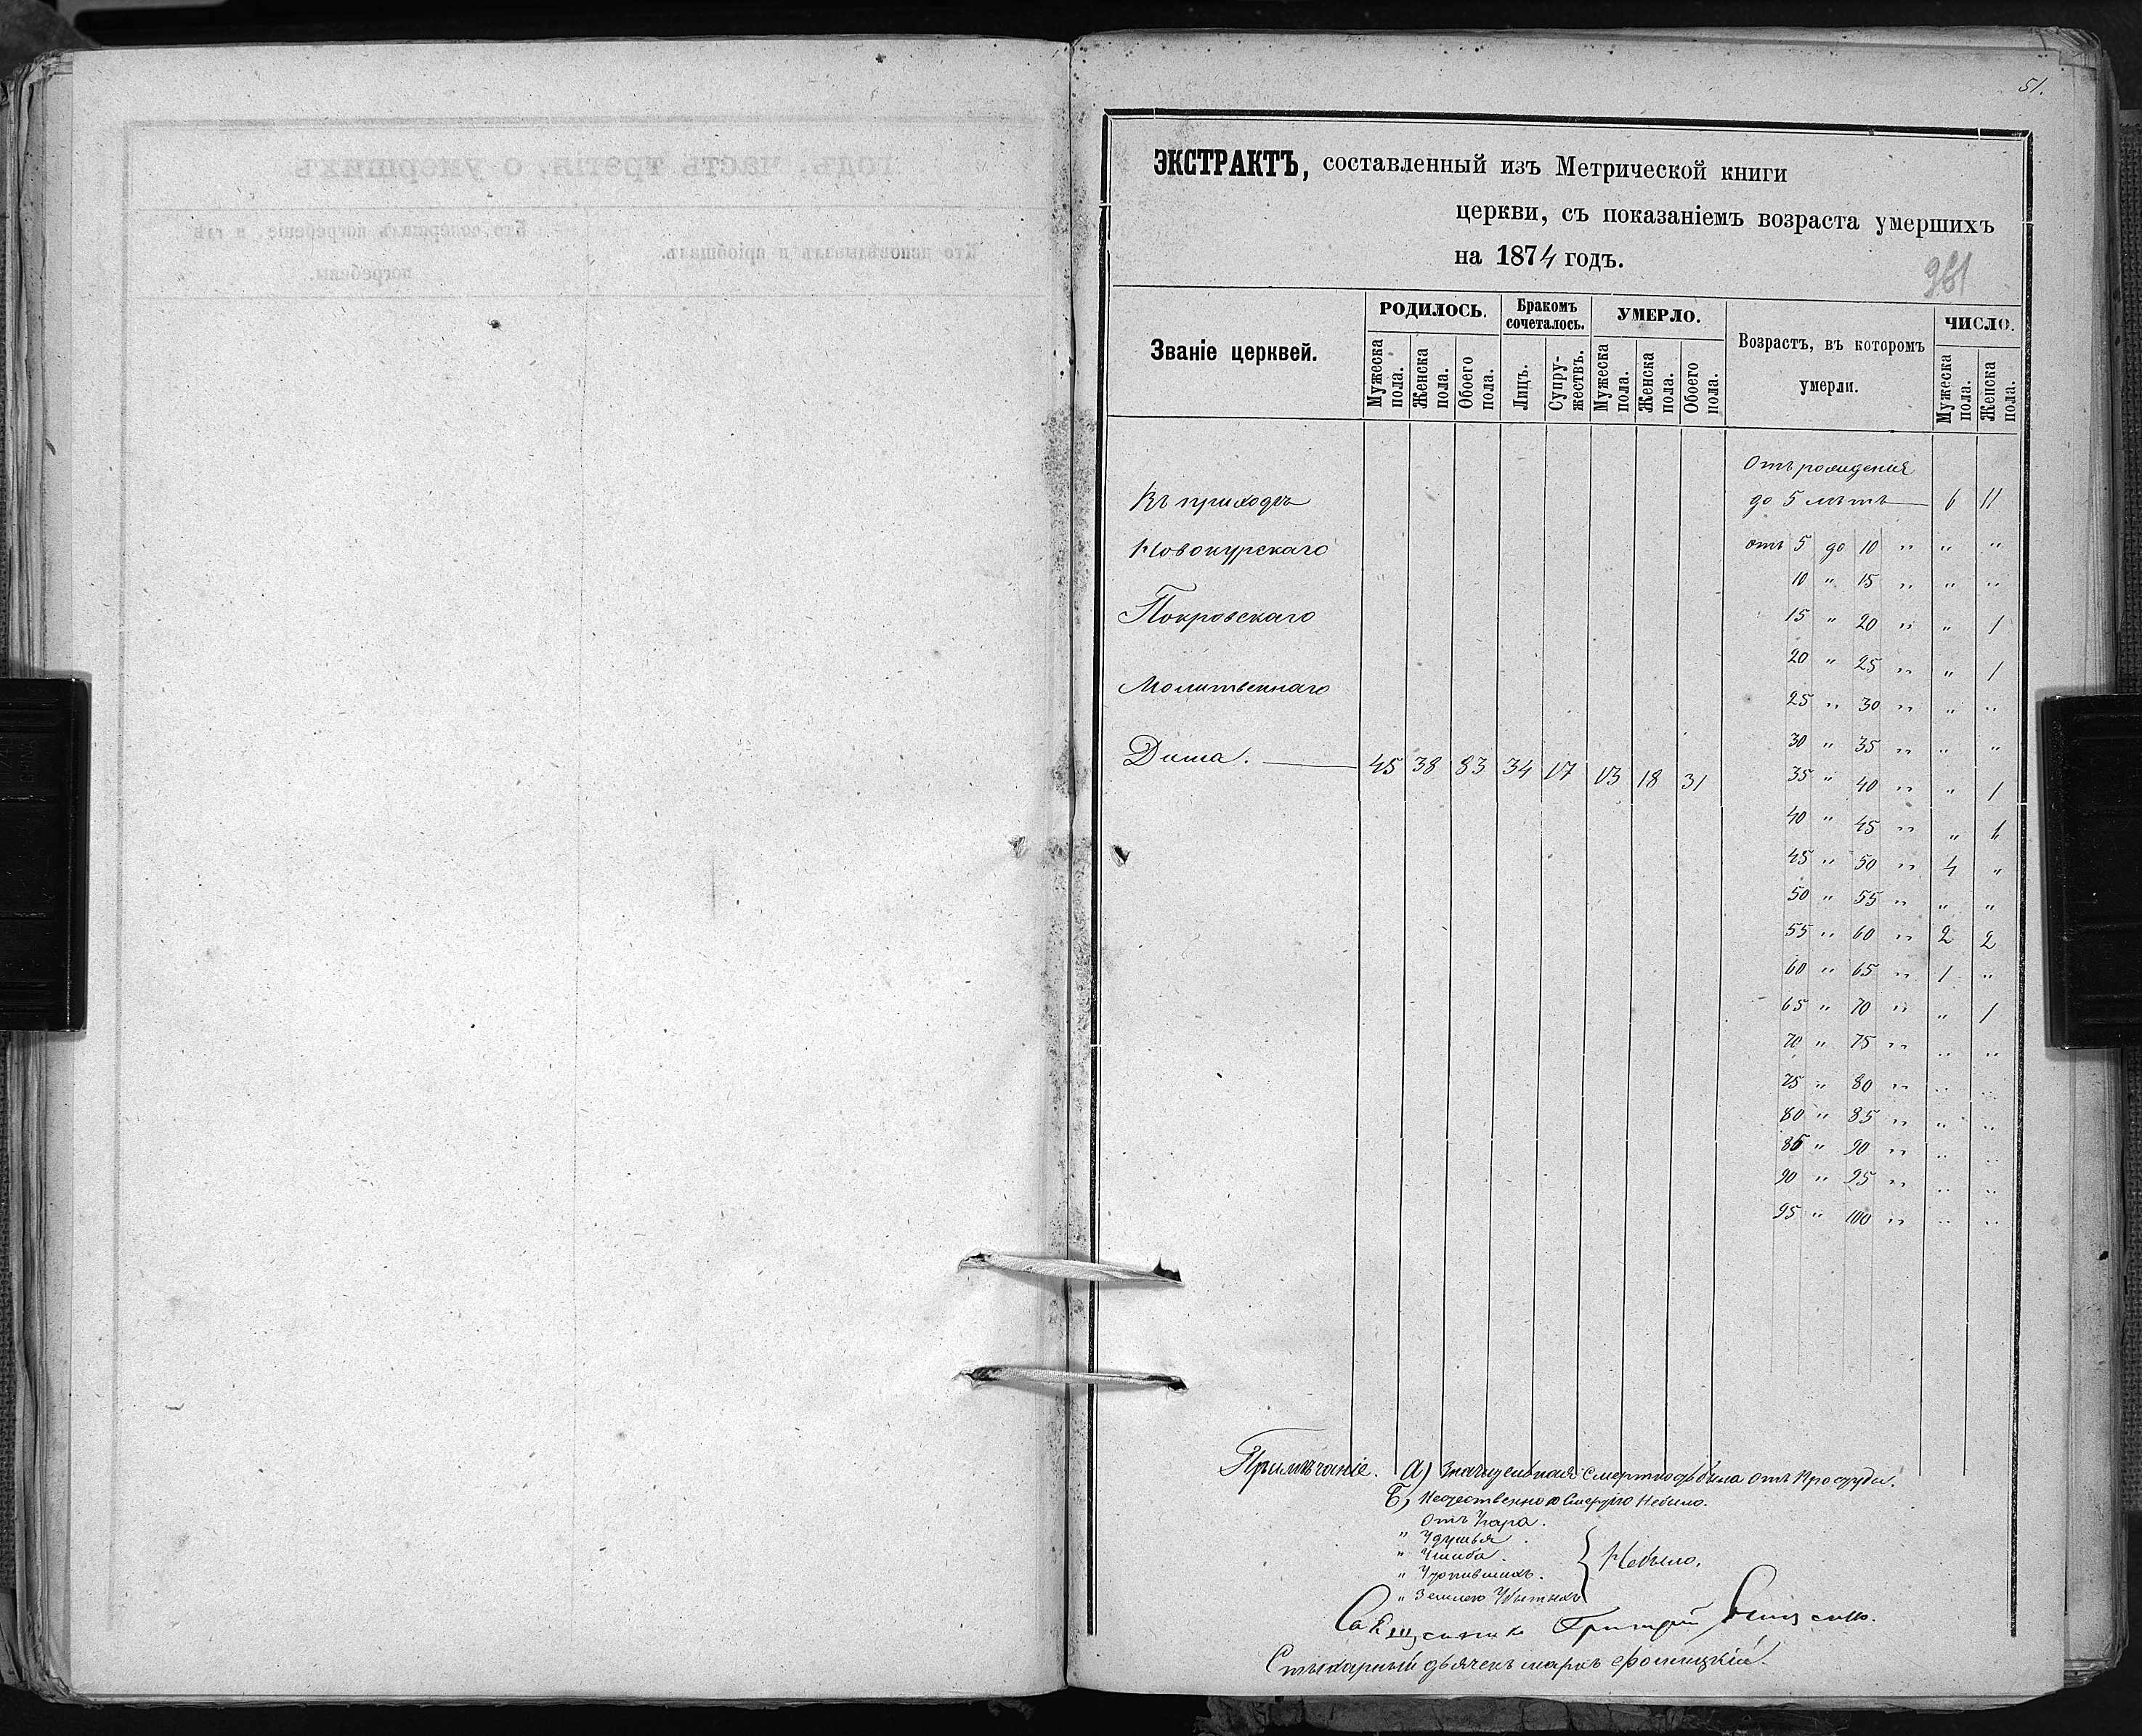 51.
ЭКСТРАКТЪ, составленный изъ Метрической книги
церкви, съ показаніемъ возраста умершихъ
на 1874 годъ.
961
Званіе церквей.
РОДИЛОСЬ.
Мужеска пола.
Женска пола.
Обоего пола.
Бракомъ сочеталось.
Лицъ.
Супружествъ.
УМЕРЛО.
Мужеска пола.
Женска пола.
Обоего пола.
Возрастъ, въ которомъ
умерли.
ЧИСЛО.
Мужеска пола.
Женска пола.
Въ приходѣ
Новокурскаго
Покровскаго
Молитвеннаго
Дома. 45 38 83 34 17 13 18 31
Отъ рожденія
до 5 лѣтъ 6 11
отъ 5 до 10 " " "
10 " 15 " " "
15 " 20 " " 1
20 " 25 " " 1
25 " 30 " " "
30 " 35 " " "
35 " 40 " " 1
40 " 45 " " 1
45 " 50 " 4 "
50 " 55 " " "
55 " 60 " 2 2
60 " 65 " 1 "
65 " 70 " " 1
70 " 75 " " "
75 " 80 " " "
80 " 85 " " "
85 " 90 " " "
90 " 95 " " "
95 " 100 " " "
Примѣчаніе. А) Значительная смертность была отъ Простуды.
Б) Неестественною Смертію Небыло.
Отъ Угара.
" Удушья.
" Ушиба.
" Утопившихъ.
" Землею Убитыхъ
Небыло.
Священникъ Григорій
Стихарный дьячекъ Маркъ Фомицкій.